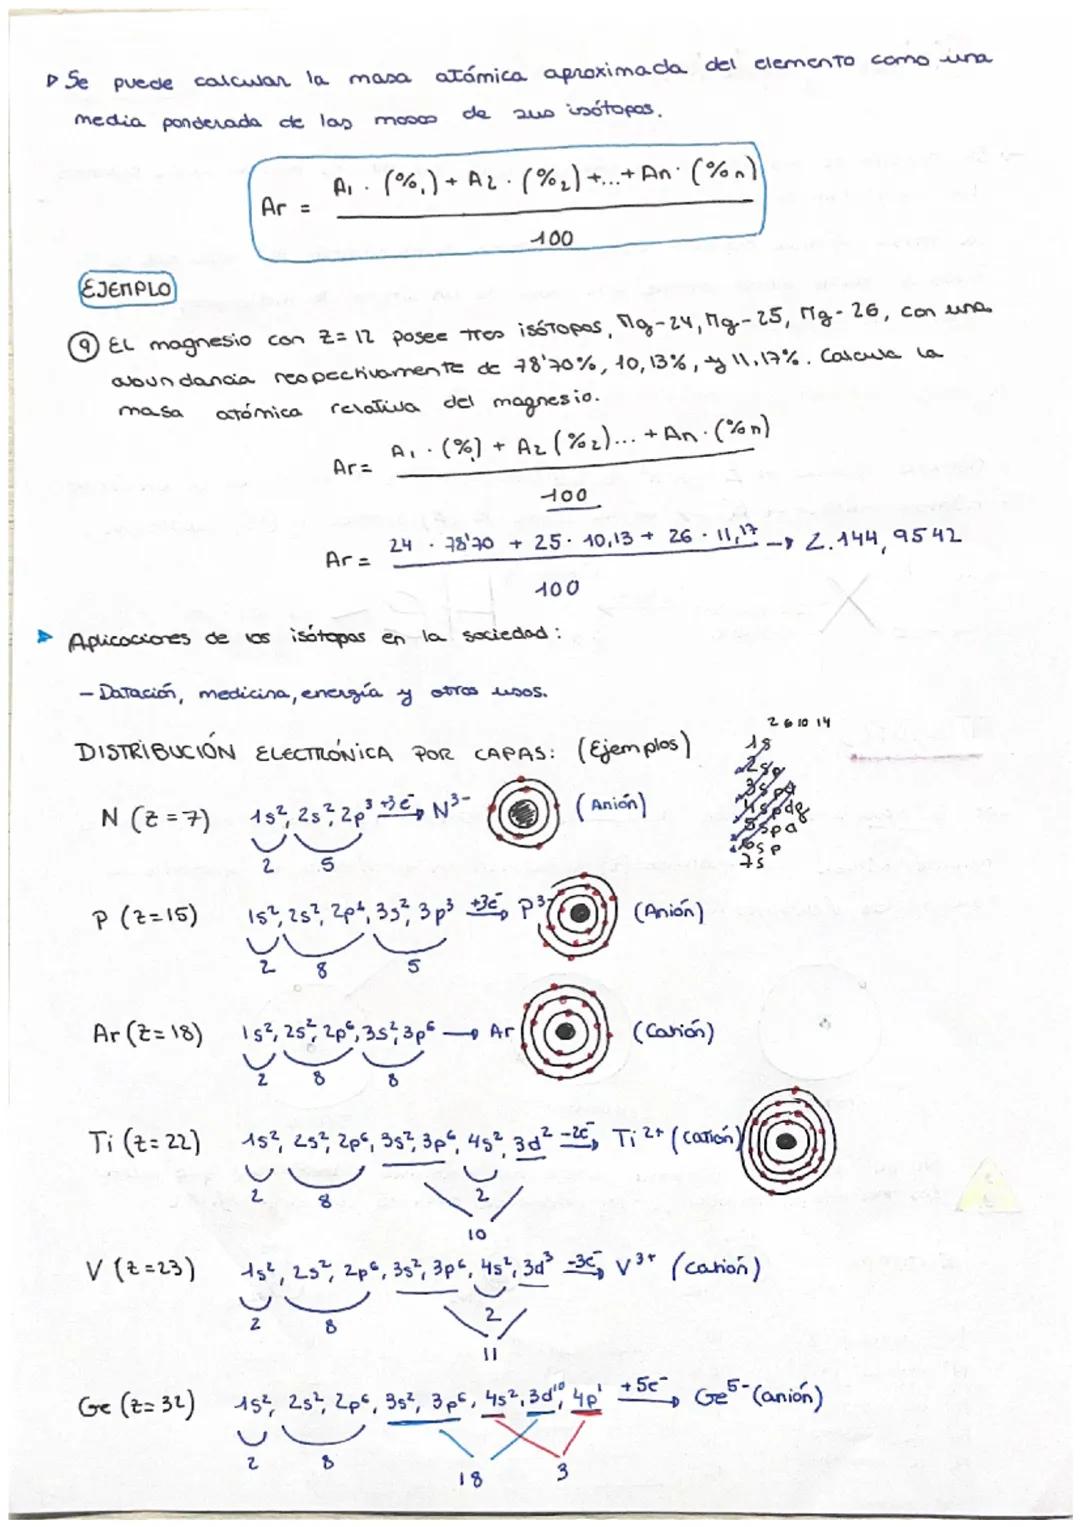 ▷ Se puede calcular la masa atómica aproximada del elemento como una
media ponderada de las masas de sus isótopos.
Ar = A₁ · (%₁) + A₂ · (%₂) +...+ An · (%n)
100
EJEMPLO
⑨ El magnesio con Z=12 posee tres isótopos, Mg-24, Mg-25, Mg-26, con una
abundancia respectivamente de 78'70%, 10,13%, y 11,17%. Calcula la
masa atómica relativa del magnesio.
Ar= A₁ · (%₁) + A₂ (%₂)... + An · (%n)
100
Ar= 24 · 78'70 + 25 · 10,13 + 26 · 11,17 → 2.144,9542
100
➤ Aplicaciones de los isótopos en la sociedad:
- Datación, medicina, energía y otros usos.
2 6 10 14
DISTRIBUCIÓN ELECTRÓNICA POR CAPAS: (Ejemplos)
1s
2sp
3spd
4spdf
5spd
6sp
7s
N (z=7) 1s², 2s², 2p³ +3e⁻→ N³⁻ (Anión)
2 5
P (z=15) 1s², 2s², 2p⁶, 3s², 3p³ +3e⁻→ P³⁻ (Anión)
2 8 5
Ar (z=18) 1s², 2s², 2p⁶, 3s², 3p⁶ → Ar (Catión)
2 8 8
Ti (z=22) 1s², 2s², 2p⁶, 3s², 3p⁶, 4s², 3d² -2e⁻→ Ti²⁺ (catión)
2 8 2
10
V (z=23) 1s², 2s², 2p⁶, 3s², 3p⁶, 4s², 3d³ -3e⁻→ V³⁺ (catión)
2 8 2
11
Ge (z=32) 1s², 2s², 2p⁶, 3s², 3p⁶, 4s², 3d¹⁰, 4p¹ +5e⁻→ Ge⁵⁻ (anión)
2 8 18 3